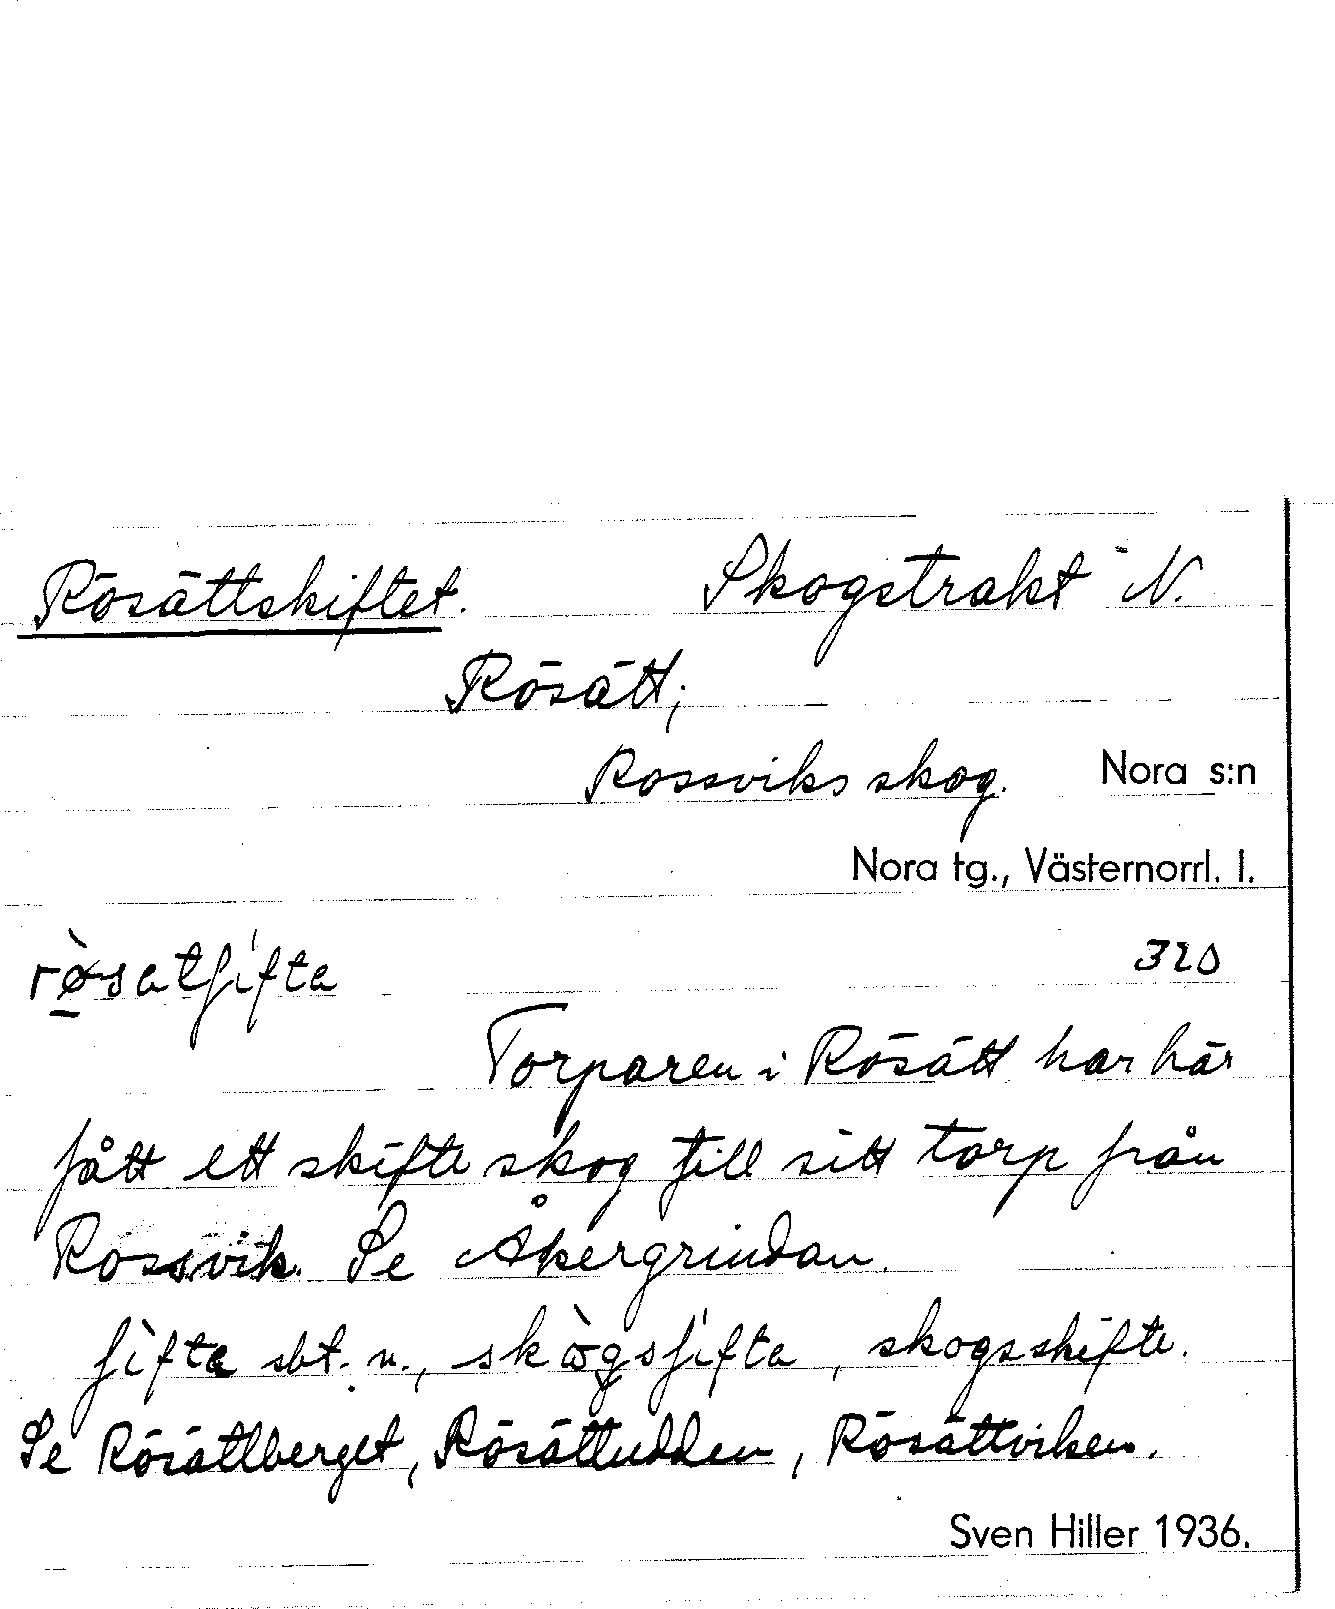 Rösättskiftet. Skogstrakt N.
Rösätt;
Rossviks skog. Nora s:n
Nora tg., Västernorrl. l.
rø̀satʃifta 320
Torparen i Rösätt har här
fått ett skifte skog till sitt torp från
Rossvik. Se Åkergrindan.
ʃìfta sbt. n., skògsʃifta, skogsskifte.
Se Rösättberget, Rösättudden, Rösättviken.
Sven Hiller 1936.